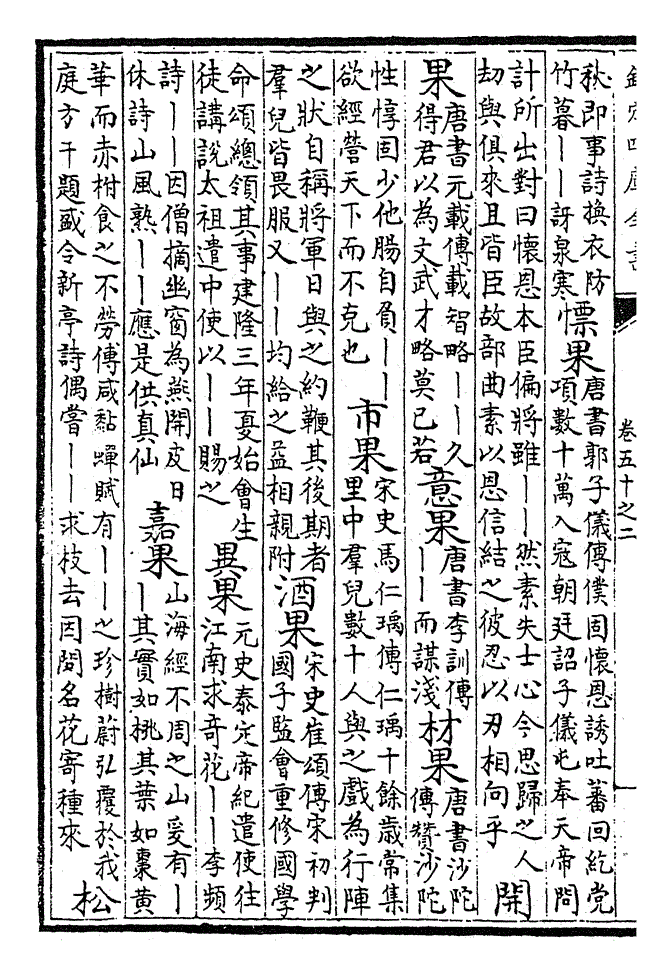 欽定四庫全書
卷五十之二
秋即事詩換衣防
竹暮丨丨訝泉寒
慓果
唐書郭子儀傳僕固懷恩誘吐蕃回紇党
項數十萬入寇朝廷詔子儀屯奉天帝問
計所出對曰懷恩本臣偏將雖丨丨然素失士心今思歸之人
刧與俱來且皆臣故部曲素以恩信結之彼忍以刃相向乎
開
果
唐書元載傳載智略丨丨久
得君以為文武才略莫已若
意果
唐書李訓傳
丨丨而謀淺
材果
唐書沙陀
傳贊沙陀
性惇固少他腸自負丨丨
欲經營天下而不克也
市果
宋史馬仁瑀傳仁瑀十餘歲常集
里中羣兒數十人與之戲為行陣
之狀自稱將軍日與之約鞭其後期者
羣兒皆畏服又丨丨均給之益相親附
酒果
宋史崔頌傳宋初判
國子監會重修國學
命頌總領其事建隆三年夏始會生
徒講說太祖遣中使以丨丨賜之
異果
元史泰定帝紀遣使往
江南求奇花丨丨李頻
詩丨丨因僧摘幽窗為燕開皮日
休詩山風熟丨丨應是供真仙
嘉果
山海經不周之山爰有丨
丨其實如桃其葉如棗黃
華而赤柎食之不勞傅咸黏蟬賦有丨丨之珍樹蔚弘覆於我
庭方干題盛令新亭詩偶嘗丨丨求枝去因問名花寄種來
松